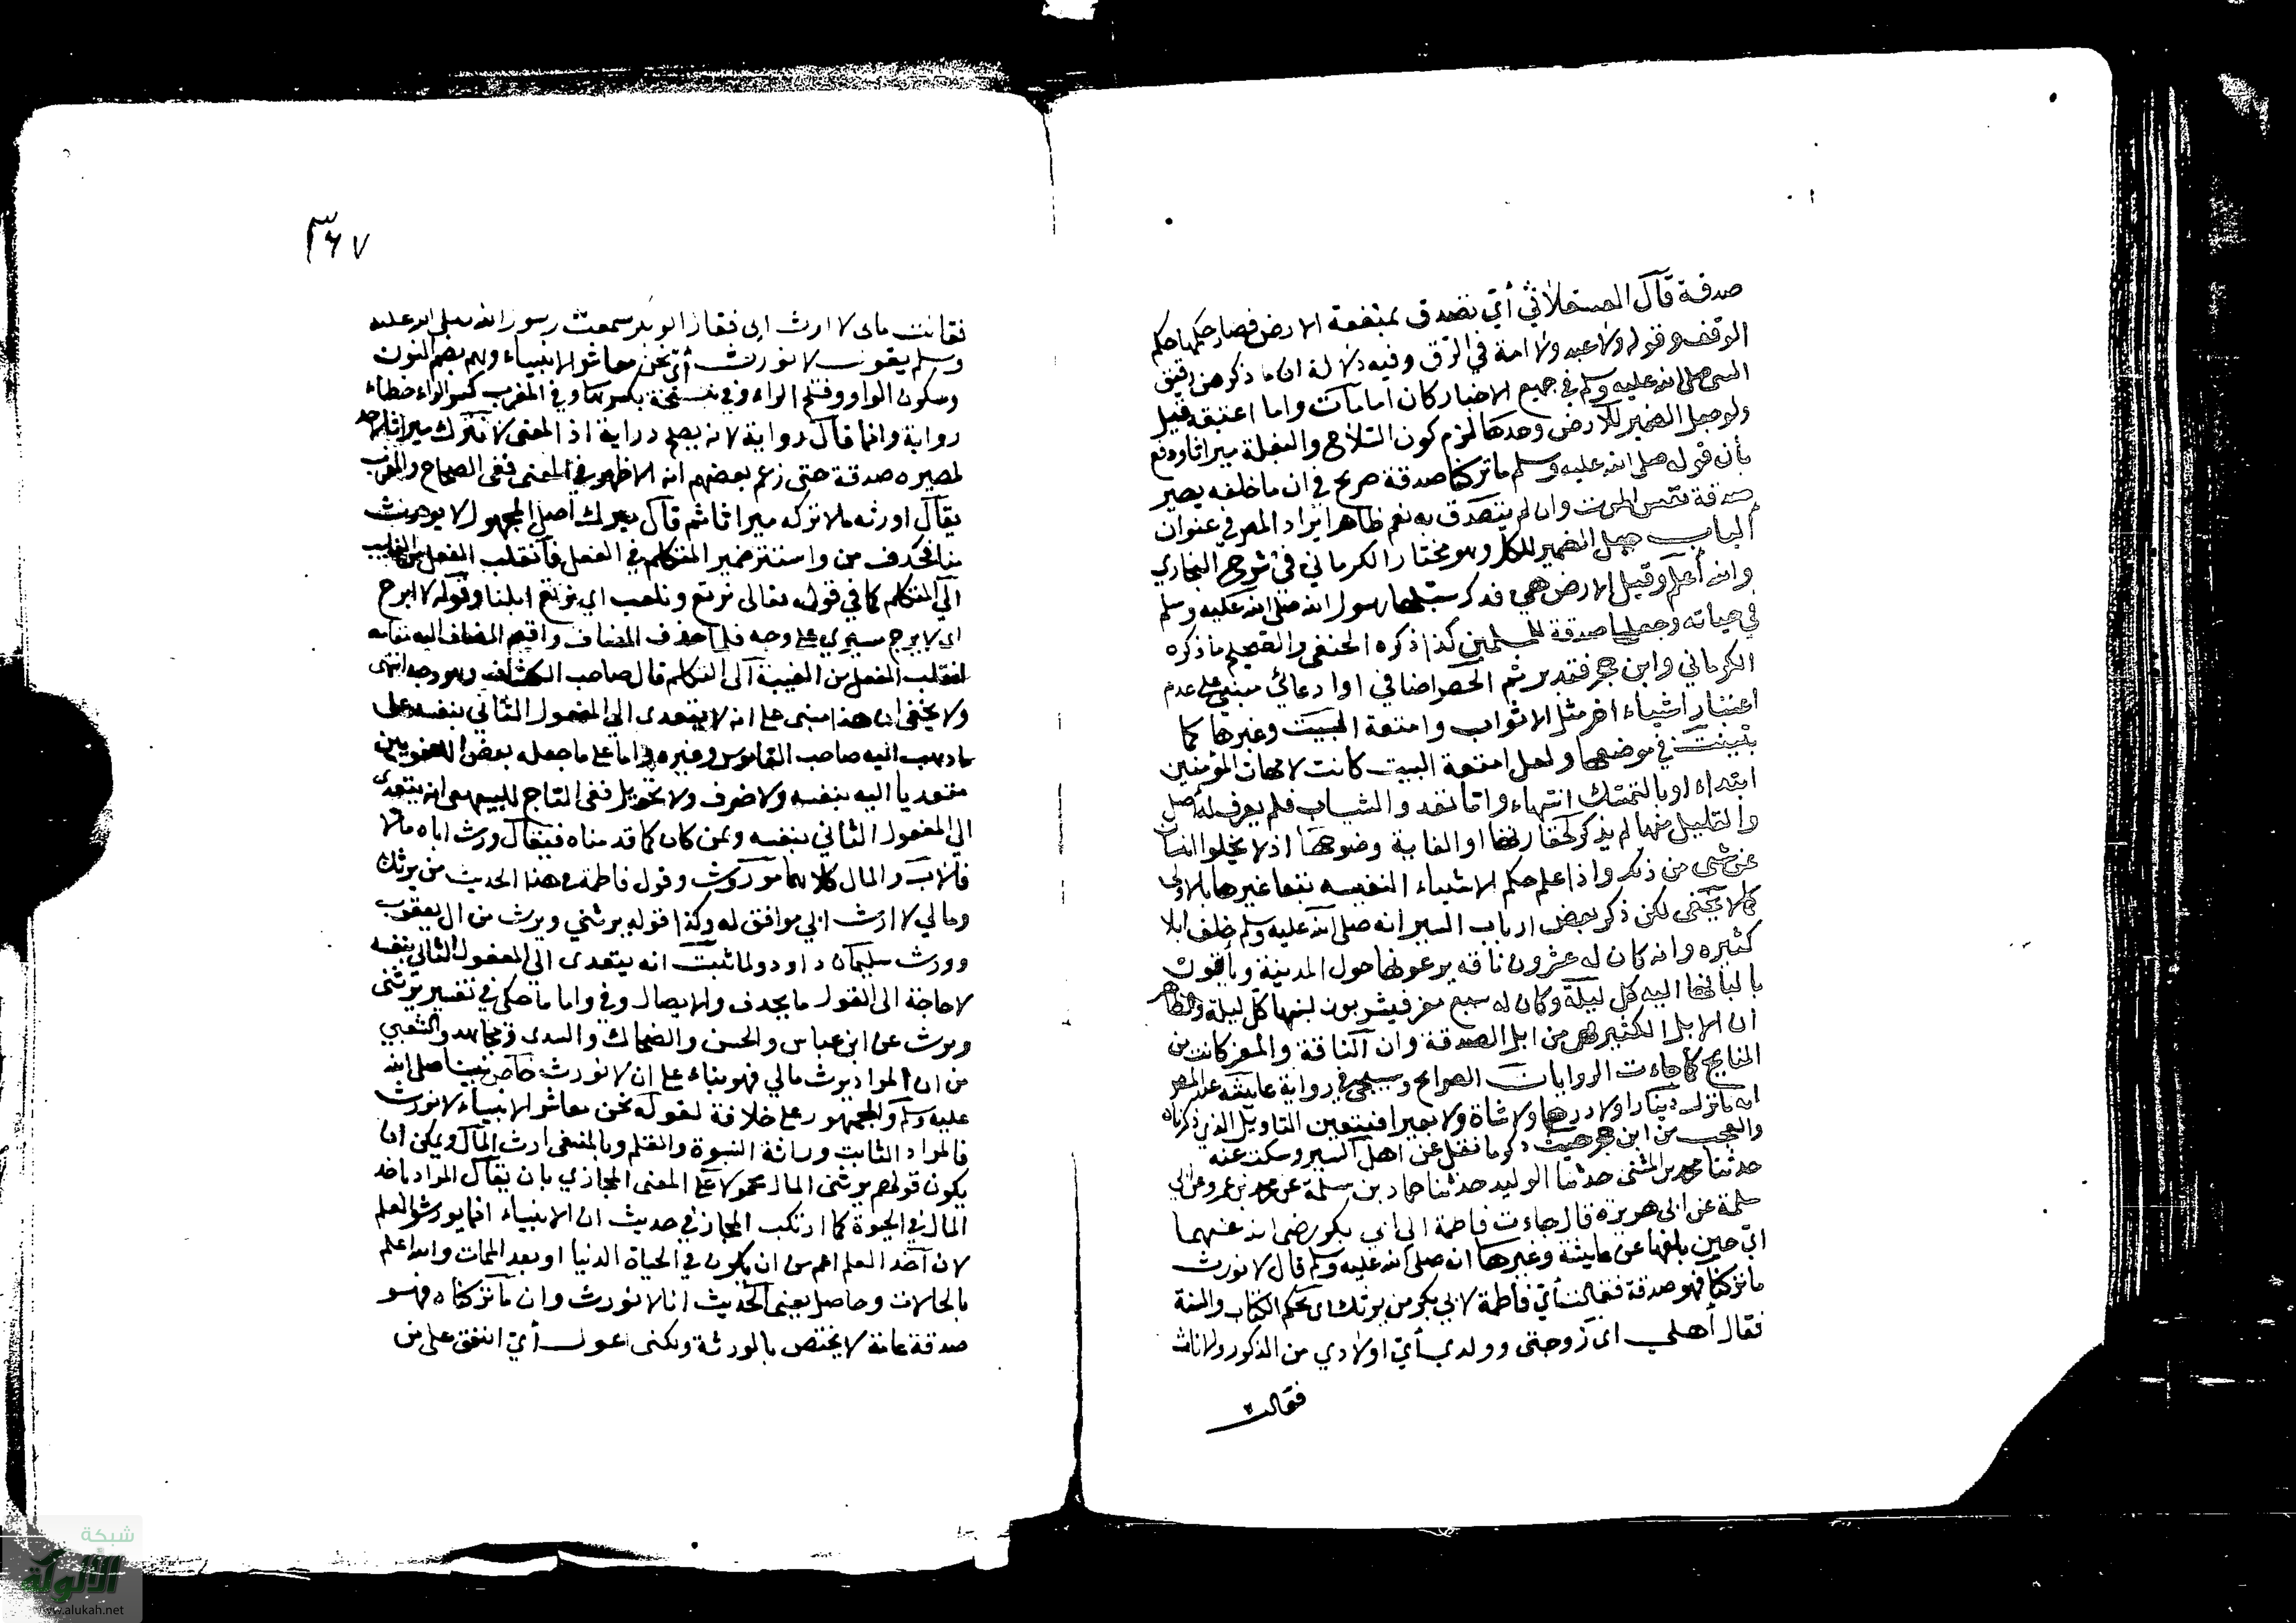 صدقة قال العسقلاني أي تصدق بمنفعة الارض فصار حكمها حكم
الوقف وقوله ولا عبد ولا امة في الرق وفيه دلالة ان ما ذكر من رقيق
النبي صلى الله عليه وسلم في جميع الاخبار كان اما مات واما اعتقه قيل
ولو جعل الضمير للأرض وحدها لزم كون السلاح والبغلة ميراثا ودفع
بأن قوله صلى الله عليه وسلم ما تركنا صدقة صريح في ان ما خلفه يصير
صدقة بنفس الموت وان لم يتصدق به نعم ظاهر ايراد المصر في عنوان
الباب جعل الضمير للكل وهو مختار الكرماني في شرح البخاري
والله أعلم وقيل الارض هي فدك سبلها رسول الله صلى الله عليه وسلم
في حياته وجعلها صدقة للمسلمين كذا ذكره الحنفي والصحيح ما ذكره
الكرماني وابن حجر فتدبر ثم الحصر اضافي او ادعائي مبني على عدم
اعتبار اشياء اخر مثل الاثواب وامتعة البيت وغيرها كما
بينت في موضعها ولعل امتعة البيت كانت لامهات المؤمنين
ابتداء او بالتمليك انتهاء واما نقد والثياب فلم يعرف له أصل
والقليل منها لم يذكر لحقارتها او لغاية وضوحها اذ لا يخلوا انسان
عن شي من ذلك واذا علم حكم الاشياء النفيسه تبعا غيرها بالاولى
كما لا يخفى لكن ذكر بعض ارباب السير انه صلى الله عليه وسلم خلف ابلا
كثيره وانه كان له عشرون ناقه يرعونها حول المدينة ويأتون
بالبانها اليه كل ليلة وكان له سبع معز فيشربون لبنها كل ليلة والظاهر
ان الابل الكثير هي من ابل الصدقة وان الناقة والمعز كانت من
المنايح كما جاءت الروايات الصوايح وسيجي في رواية عايشه عند المصر
انه ما ترك دينارا ولا درهما ولا شاة ولا بعيرا فيتعين التاويل الذي ذكرناه
والعجب من ابن حجر حيث ذكر ما نقل عن اهل السير وسكت عنه
حدثنا محمد بن المثنى حدثنا الوليد حدثنا حماد بن سلمة عن محمد بن عمرو عن ابي
سلمة عن ابي هريره قال جاءت فاطمة الى ابي بكر رضي الله عنهما
اي حين بلغها عن عايشة وغيرها انه صلى الله عليه وسلم قال لا نورث
ما تركنا فهو صدقة فقالت أي فاطمة لابي بكر من يرثك اي بحكم الكتاب والسنة
فقال أهلي اي زوجتى وولدي أي اولادي من الذكور والاناث
فقالت
٣٦٧
فقالت مالى لا ارث ابي فقال ابو بكر سمعت رسول الله صلى الله عليه
وسلم يقول لا نورث أي نحن معاشر الانبياء وهم بضم النون
وسكون الواو وفتح الراء وفي نسخة بكسرها وفي المغرب كسر الراء خطاء
رواية وانما قال رواية لانه يصح دراية اذ المعنى لا نترك ميراثا لاحد
لمصيره صدقة حتى زعم بعضهم انه الاظهر في المعنى ففي الصحاح والمغرب
يقال اورثه مالا تركه ميراثا ثم قال ميرك أصل المجهول لا يورث
منا فحذف من واستتر ضمير المتكلم في الفعل فانقلب الفعل من الغايب
الى المتكلم كما في قوله تعالى نرتع ونلعب اي نرتع ابلنا وقوله لا ابرح
اى لا يبرح مسيري على وجه فلما حذف المضاف واقيم المضاف اليه مقامه
انقلب الفعل من الغيبة الى التكلم قال صاحب الكشاف وهو وجه انتهى
ولا يخفى ان هذا مبنى على انه لا يتعدى الى المفعول الثاني بنفسه على
ما ذهب اليه صاحب القاموس وغيره واما على ما جعله بعض اللغويين
متعديا اليه بنفسه ولا حذف ولا تحويل ففى التاج للبيهقى انه يتعدى
الى المفعول الثاني بنفسه وبمن كان كما قدمناه فيقال ورث اباه مالا
فالاب والمال كلاهما موروث وقول فاطمة في هذا الحديث من يرثك
ومالي لا ارث ابي موافق له وكذا قوله يرثني ويرث من ال يعقوب
وورث سليمان داود ولما ثبت انه يتعدى الى المفعول الثاني بنفسه
لا حاجة الى القول ما يحذف والايصال وفي واما ما حكي في تفسير يرثني
ويرث عن ابن عباس والحسن والضحاك والسدى ومجاهد والشعبي
من ان المراد يرث مالي فهو بناء على ان لا نورث خاص بنبينا صلى الله
عليه وسلم والجمهور على خلافة لقوله نحن معاشر الانبياء لا نورث
فالمراد الثابت وراثة النبوة والعلم وبالمنفى ارث المال ويمكن أن
يكون قولهم يرثنى المال محمولا على المعنى المجازي بان يقال المراد باخذ
المال في الحيوة كما ارتكب المجاز في حديث ان الانبياء انما يورثوا العلم
لان اخذ العلم اعم من ان يكون في الحياة الدنيا او بعد الممات والله اعلم
بالحالات وحاصل معنى الحديث انا لا نورث وان ما تركناه فهو
صدقة عامة لا يختص بالورثة ولكنى اعول أي انفق على من
شبكة
الألوكة
www.alukah.net